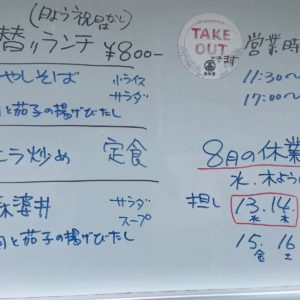 (日よう祝日はなし)
替リランチ ¥800-
やしそば 小ライス
サラダ
と茄子の揚げびたし
ニラ炒め 定食
婆丼 サラダ
スープ
肉と茄子の揚げびたし
TAKE
OUT
できます
営業時
11:30〜
17:00〜
8月の休業
水、木よう
担し 13. 14.
水 木
15. 16
金 土